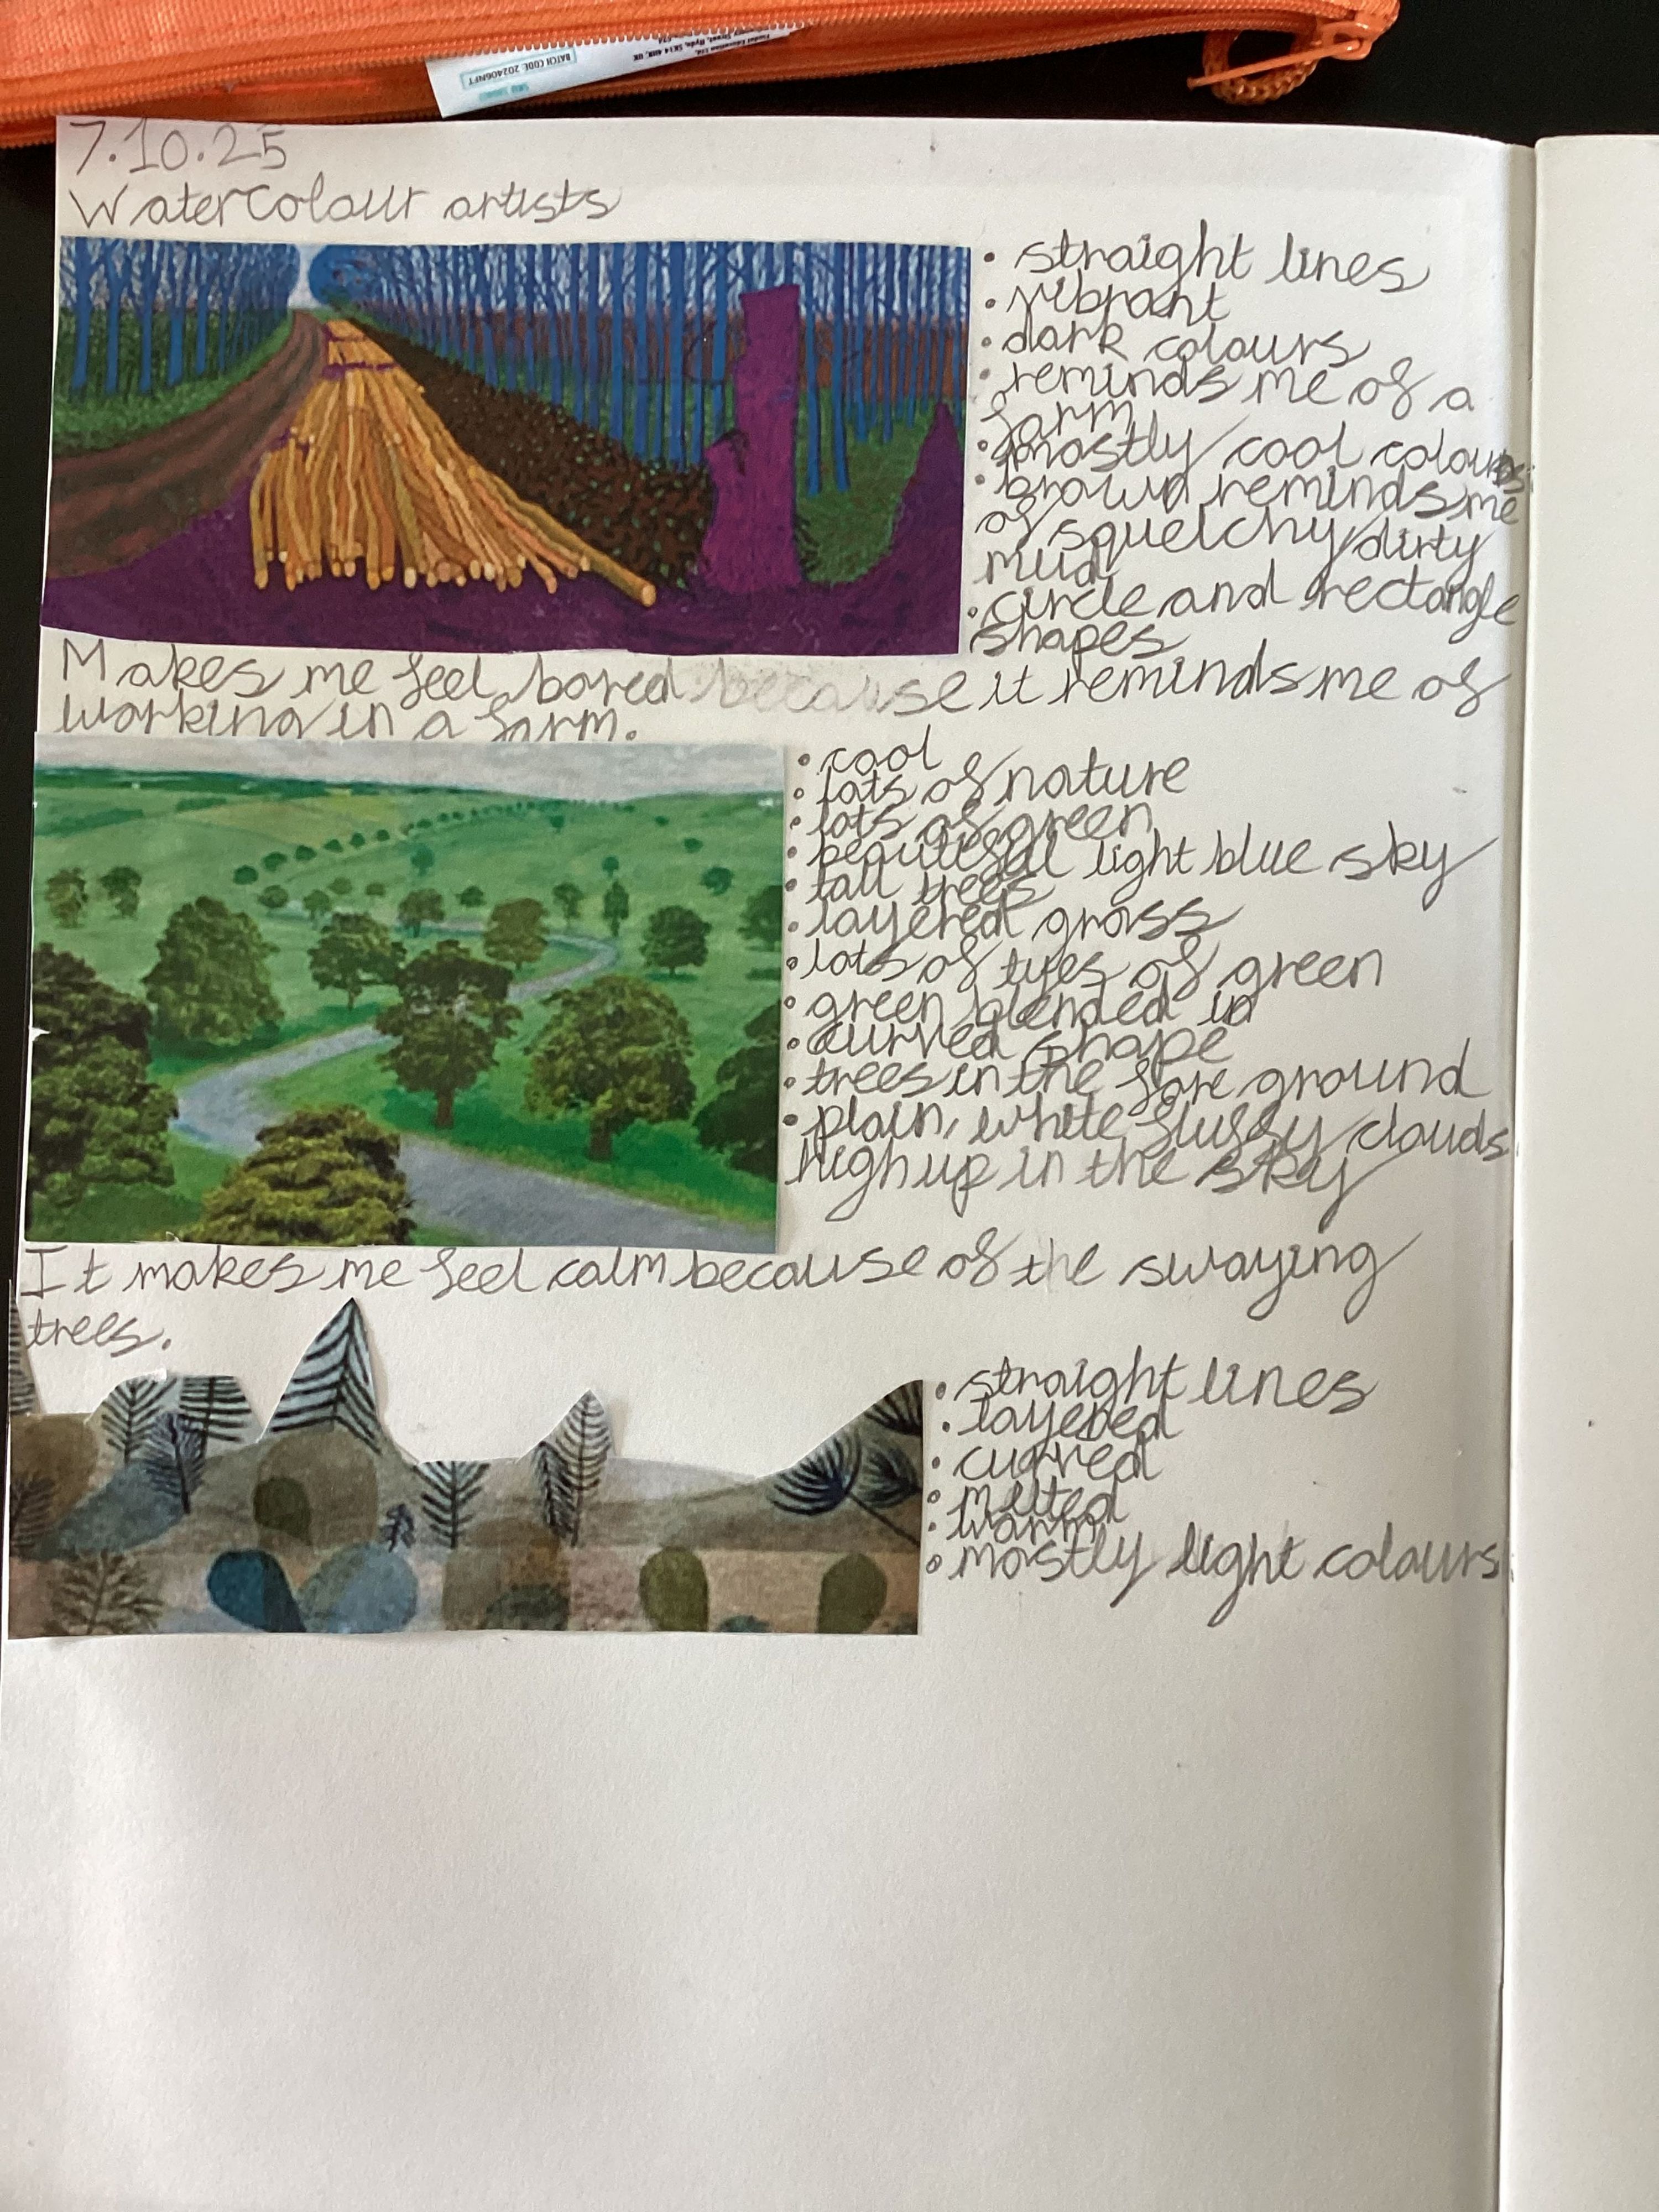 Findel Education Ltd,
Hyde, SK14 4HX, UK
BATCH CODE: 202406NFT
7.10.25
Watercolour artists
• straight lines
• vibrant
• dark colours
• reminds me of a
farm
• mostly cool colours
• brown reminds me
of squelchy dirty
mud
• circle and rectangle
shapes
Makes me feel bored because it reminds me of
working in a farm.
• cool
• lots of nature
• lots of green
• beautiful light blue sky
• tall trees
• layered grass
• lots of tyes of green
• green blended in
• curved shape
• trees in the fore ground
• plain, white fluffy clouds
high up in the sky
It makes me feel calm because of the swaying
trees.
• straight lines
• layered
• curved
• melted
• warm
• mostly light colours